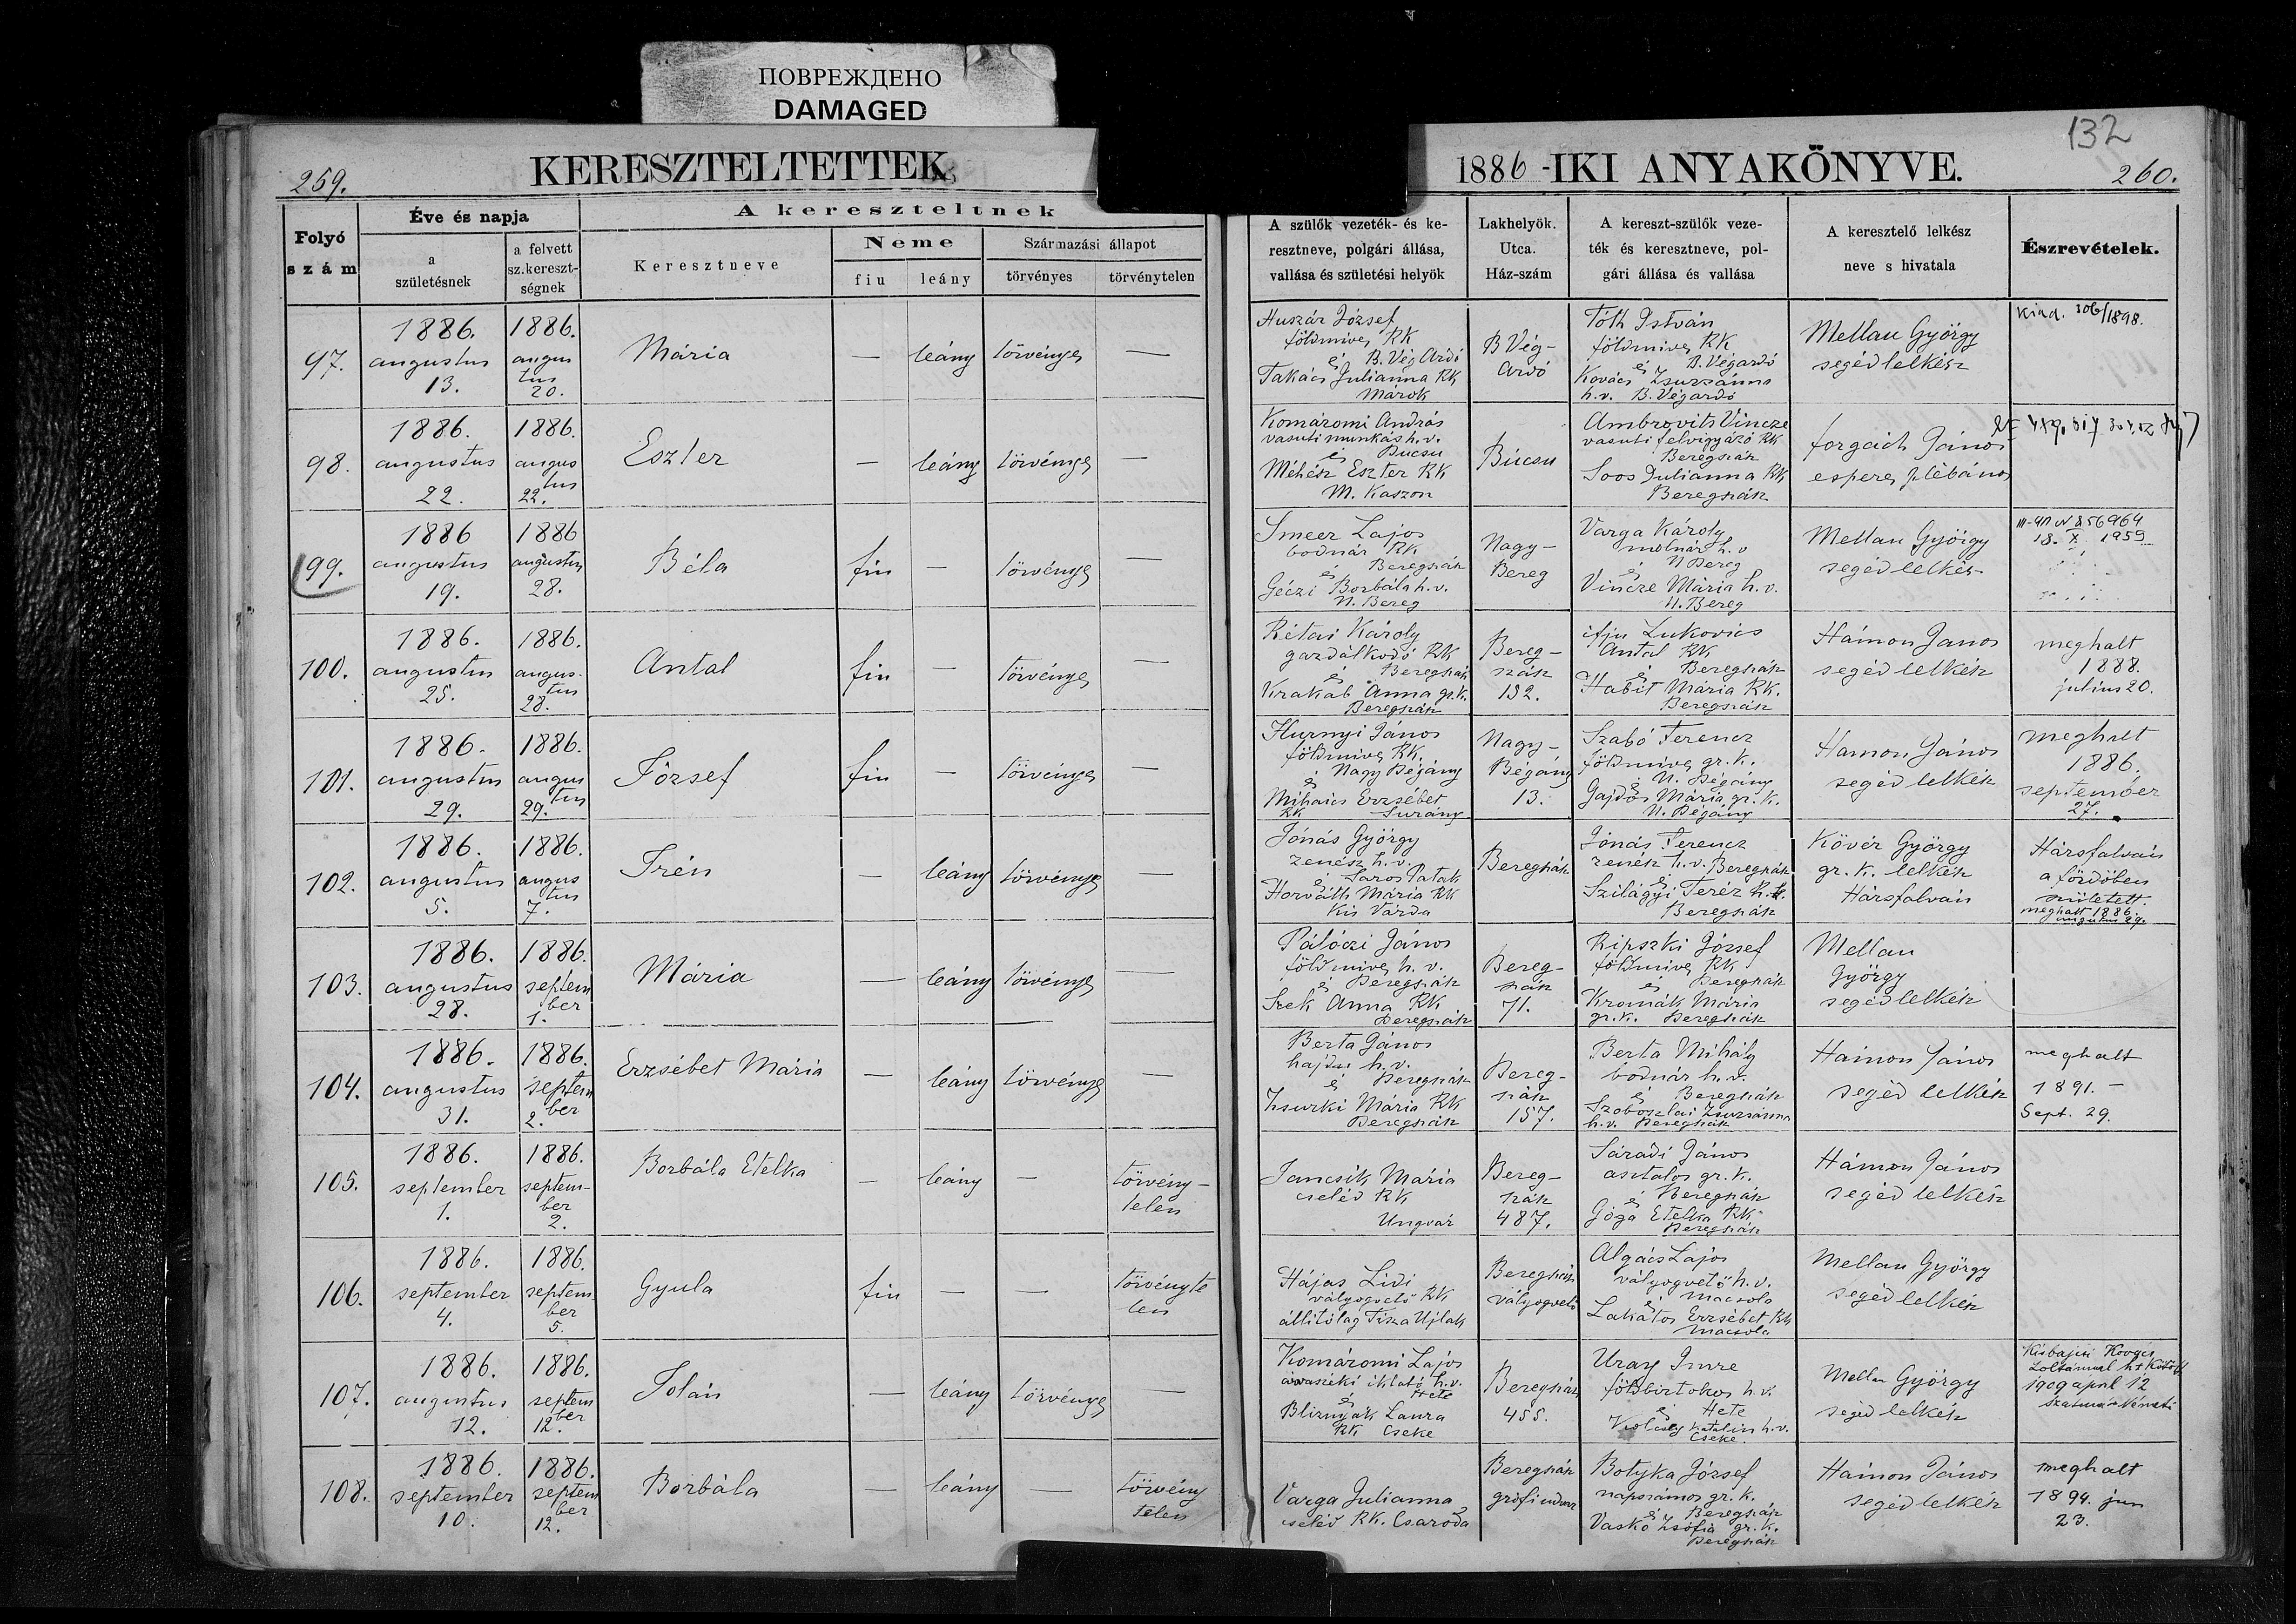 ПОВРЕЖДЕНО
DAMAGED
132
259.
KERESZTELTETTEK
1886-IKI ANYAKÖNYVE.
260.
Folyó szám
Éve és napja
a születésnek
a felvett sz.kereszt-ségnek
A kereszteltnek
Keresztneve
Neme
fiu
leány
Származási állapot
törvényes
törvénytelen
A szülők vezeték- és ke-
resztneve, polgári állása,
vallása és születési helyök
Lakhelyök.
Utca.
Ház-szám
A kereszt-szülők veze-
ték és keresztneve, pol-
gári állása és vallása
A keresztelő lelkész
neve s hivatala
Észrevételek.
97.
1886. augustus 13.
1886. augustus 20.
Mária
— leány törvényes —
Huszár József
földmives RK
és B. Vég Ardó
Takács Julianna RK
Marok
B Vég-
Ardó
Tóth István
földmives RK
és B. Végardó
Kovács Zsuzsánna
h.v. B. Végardó
Mellau György
segédlelkész
Kiad. 306/1898.
98.
1886. augustus 22.
1886. augustus 22.
Eszter
— leány törvényes —
Komáromi András
vasuti munkás h.v.
és Bucsu
Méhész Eszter RK
M. Kaszon
Búcsu
Ambrovits Vincze
vasuti felvigyázó RK
Beregszász
Soos Julianna RK
Beregszász
forgách János
esperes plébános
99.
1886 augustus 19.
1886 augustus 28.
Béla
fiu — törvényes —
Smeer Lajos
bodnár RK
és Beregszász
Géczi Borbála h.v.
N. Bereg
Nagy-
Bereg
Varga Károly
molnár h.v
és N Bereg
Vincze Mária h.v.
N. Bereg
Mellau György
segédlelkész
III-ЯП N 856964
18. X. 1959
100.
1886. augustus 25.
1886. augustus 28.
Antal
fiu — törvényes —
Rétai Károly
gazdálkodó RK
és Beregszász
Krakab Anna gr.k.
Beregszász
Bereg-
szász
192.
ifju Lukovics
Antal RK
és Beregszász
Habit Mária RK.
Beregszász
Hámon János
segédlelkész
meghalt
1888.
julius 20.
101.
1886. augustus 29.
1886. augustus 29.
József
fiu — törvényes —
Hurnyi János
földmives RK.
és Nagy Bégány
Mihaics Erzsébet
RK Surány
Nagy-
Bégány
13.
Szabó Ferencz
földmives gr.k.
és N. Bégány
Gajdos Mária gr.k.
N. Bégány
Hamon János
segédlelkész
meghalt
1886.
september
27.
102.
1886. augustus 5.
1886. augustus 7.
Irén
— leány törvényes —
Jónás György
zenész h.v.
és Saros Patak
Horváth Mária RK
Kis Várda
Beregszász
Jónás Ferencz
zenész h.v. Beregszász
és
Szilágyi Teréz
Beregszász
Kövér György
gr.k. lelkész
Hársfalván
Hársfalván
a fördőben
született.
meghalt 1886.
augustus 29.
103.
1886. augustus 28.
1886. september 1.
Mária
— leány törvényes —
Pálóczi János
földmives h.v.
és Beregszász
Szek Anna RK
Beregszász
Bereg-
szász
71.
Ripszki József
földmives RK
és Beregszász
Kromák Mária
gr.k. Beregszász
Mellau
György
segédlelkész
104.
1886. augustus 31.
1886. september 2.
Erzsébet Mária
— leány törvényes —
Berta János
hajdu h.v.
és Beregszász
Zsurki Mária RK
Beregszász
Bereg-
szász
157.
Berta Mihály
bodnár h.v.
és Beregszász
Szoboszlai Zsuzsánna
h.v. Beregszász
Hámon János
segédlelkész
meghalt
1891. —
Sept. 29.
105.
1886. september 1.
1886. september 2.
Borbála Etelka
— leány — törvény-
telen
Jancsik Mária
cseléd RK
Ungvár
Bereg-
szász
487.
Sáradi János
asztalos gr.k.
és Beregszász
Góga Etelka RK
Beregszász
Hámon János
segédlelkész
106.
1886. september 4.
1886. september 5.
Gyula
fiu — — törvényte
len
Hájas Lidi
vályogvető RK
állitólag Tisza Ujlak
Beregszász
vályogvető
Algács Lajos
vályogvető h.v.
és Macsola
Lakatos Erzsébet RK
Macsola
Mellau György
segédlelkész
107.
1886. augustus 12.
1886. september 12.
Jolán
— leány törvényes —
Komáromi Lajos
árvaszéki iktató h.v.
és Hete
Bliznyák Laura
RK Cseke
Beregszász
455.
Uray Imre
földbirtokos h.v.
és Hete
Kölcsey Katalin h.v.
Cseke.
Mellau György
segédlelkész
1909 april 12
Szatmár-Németi
108.
1886. september 10.
1886. september 12.
Borbála
— leány — törvény
telen
Varga Julianna
cseléd RK. Csaroda
Beregszász
grófi udvar
Botyka József
napszámos gr.k.
és Beregszász
Vaskó Zsófia gr.k.
Beregszász
Hámon János
segédlelkész
meghalt
1894. jun
23.